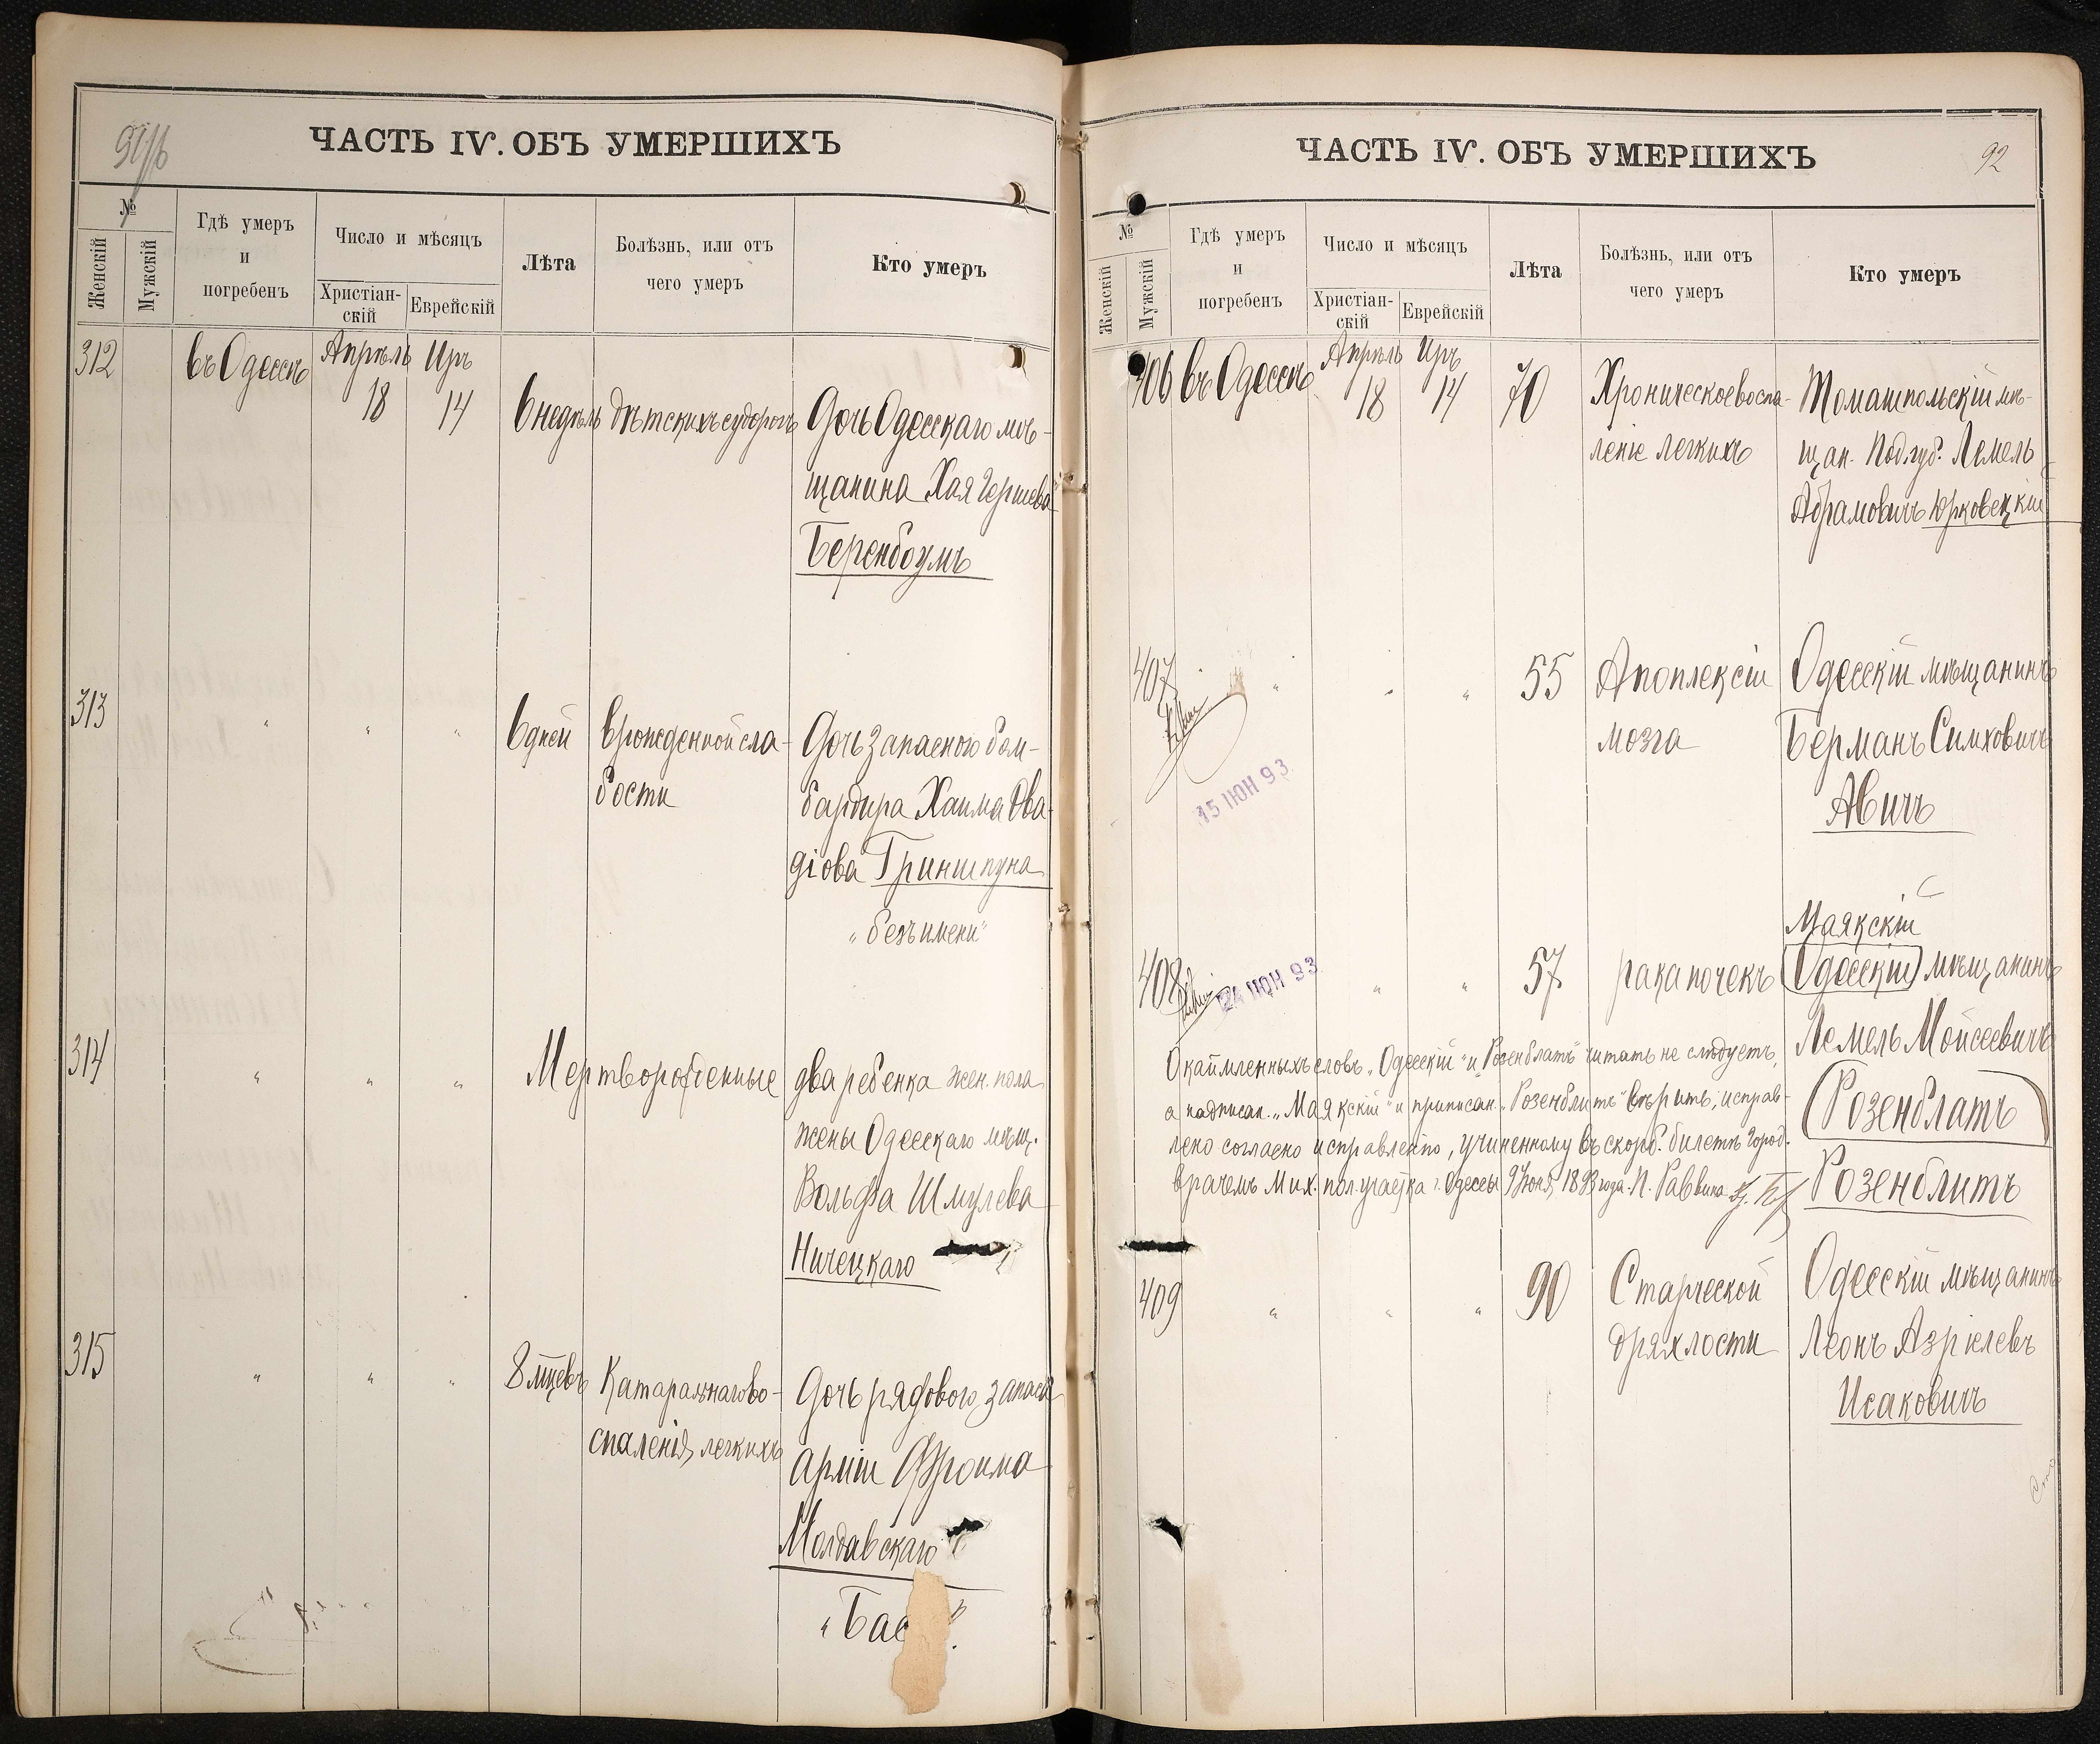 ЧАСТЬ IV. ОБЪ УМЕРШИХЪ
№
Женскій
Мужскій
Гдѣ умеръ
и
погребенъ
Число и мѣсяцъ
Христіан-
скій
Еврейскій
Лѣта
Болѣзнь, или отъ
чего умеръ
Кто умеръ
312
въ Одессѣ
Апрѣль Иръ
18 14
6 недѣль
дѣтскихъ судорогъ
Дочь Одесскаго мѣ-
щанина Хая Гершева
Беренбоумъ
313
" " "
6 дней
врожденной сла-
бости
Дочь запасного бом-
бардира Хаима Ова-
діова Гриншпуна
"безъ имени"
314
" " "
Мертворожденные
два ребенка жен. пола
жены Одесскаго мѣщ.
Вольфа Шмулева
Ничецкаго
315
" " "
8 мцевъ
Катаральнаго во-
спаленія легкихъ
Дочь рядового запаса
арміи Фроима
Молдавскаго
ЧАСТЬ IV. ОБЪ УМЕРШИХЪ
92
№
Женскій
Мужскій
Гдѣ умеръ
и
погребенъ
Число и мѣсяцъ
Христіан-
скій
Еврейскій
Лѣта
Болѣзнь, или отъ
чего умеръ
Кто умеръ
406
въ Одессѣ
Апрѣль Иръ
18 14
70
Хроническое воспа-
леніе легкихъ
Томашпольскій мѣ-
щан. Под. губ. Лемель
Абрамовичъ Юрковецкій
407
" " "
15 ІЮН 93
55
Апоплексіи
мозга
Одесскій мѣщанинъ
Берманъ Симховичъ
Авичъ
408
24 ІЮН 93
" "
57
рака почекъ
Маякскій
Одесскій мѣщанинъ
Лемель Мойсеевичъ
Розенблатъ
Розенблитъ
Окаймленныхъ словъ "Одесскій" и "Розенблатъ" читать не слѣдуетъ,
а надписан. "Маякскій" и приписан. "Розенблитъ" вѣрить, исправ-
лено согласно исправленію, учиненному въ скорб. билетѣ Город.
врачемъ Мих. пол. участка г. Одессы 9 Іюня 1893 года. И. Раввина
409
" " "
90
Старческой
дряхлости
Одесскій мѣщанинъ
Леонъ Азріелевъ
Исаковичъ